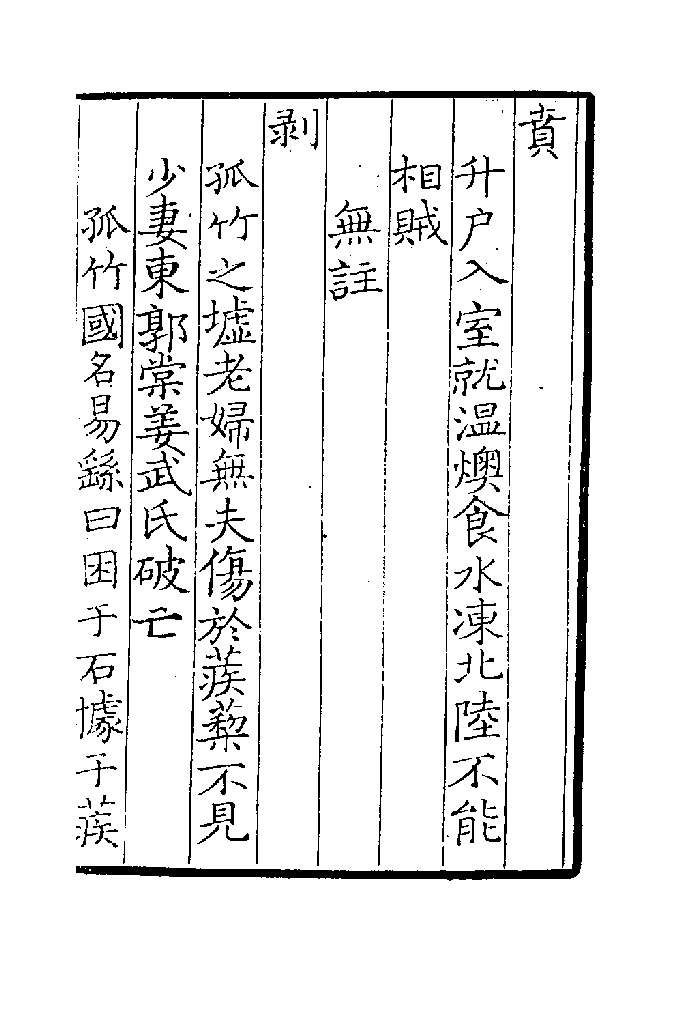 賁
升户入室就温燠食水凍北陸不能
相賊
無註
剥
孤竹之墟老婦無夫傷於蒺藜不見
少妻東郭棠姜武氏破亡
孤竹國名易繇曰困于石據于蒺